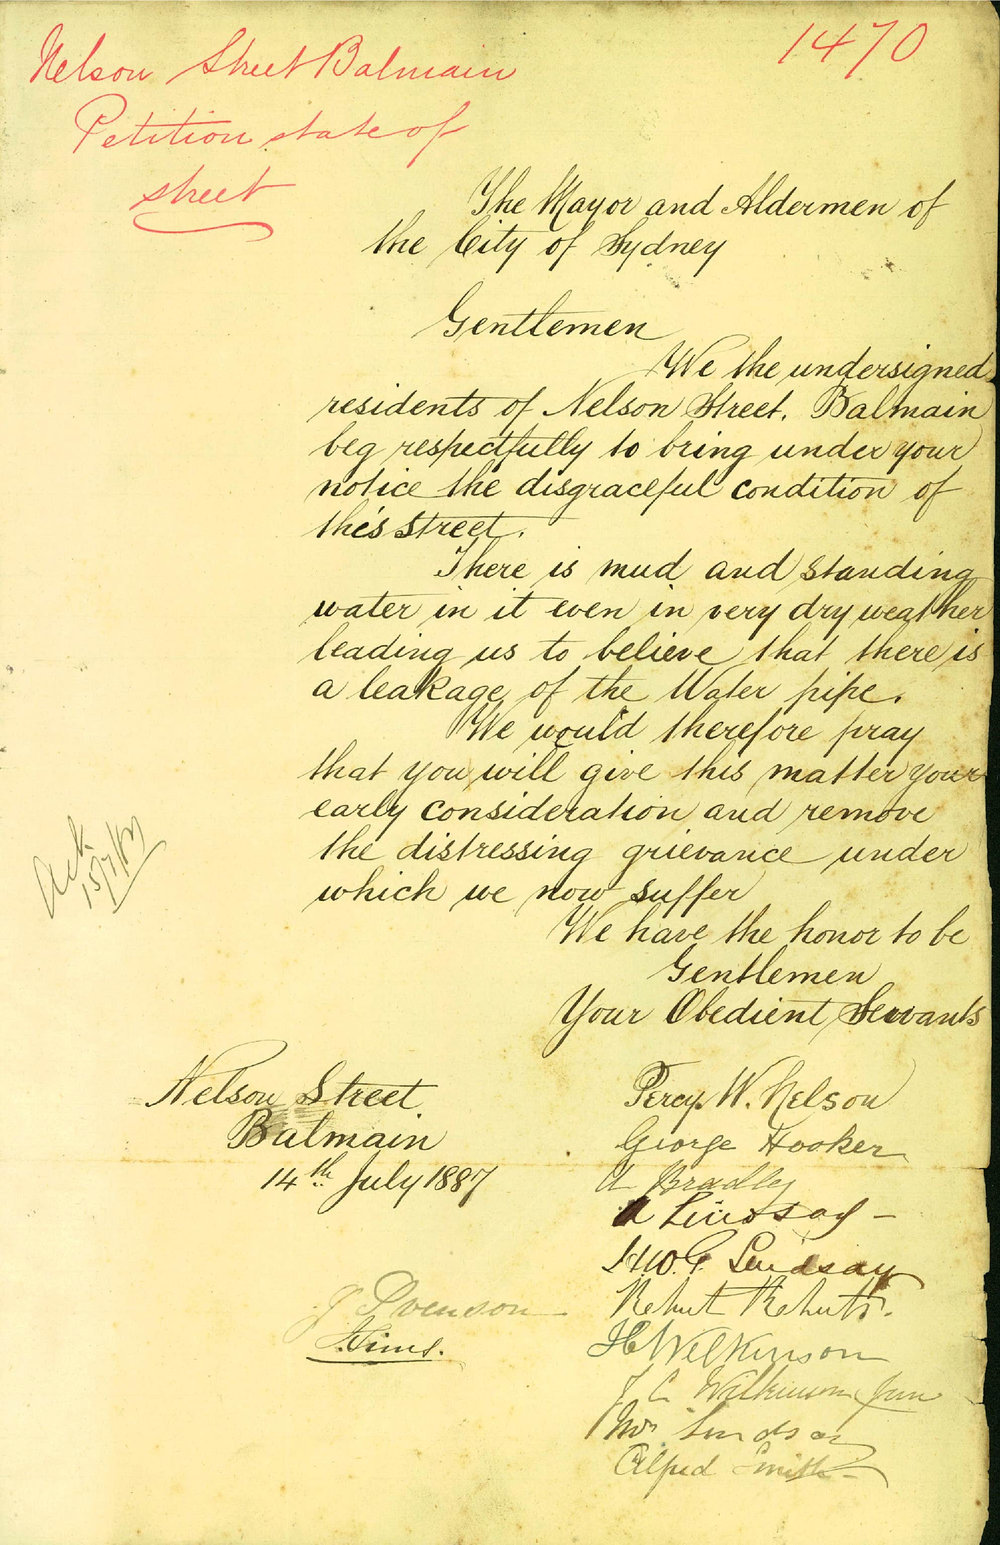 1470
Nelson Street Balmain
Petition state of
street
The Mayor and Aldermen of
the City of Sydney
Gentlemen
We the undersigned
residents of Nelson Street. Balmain
beg respectfully to bring under your
notice the disgraceful condition of
this street.
There is mud and standing
water in it even in very dry weather
leading us to believe that there is
a leakage of the Water pipe.
We would therefore pray
that you will give this matter your
early consideration and remove
the distressing grievance under
which we now suffer
We have the honor to be
Gentlemen
Your Obedient Servants
Ack
15/7/87
Nelson Street
Balmain
14th July 1887
Percy. W. Nelson
George Hooker
A Bradley
A Lindsay
Lindsay
J
Sims.
H Wilkinson
J C Wilkinson Jun
Mrs Lindsay
Alfred Smith